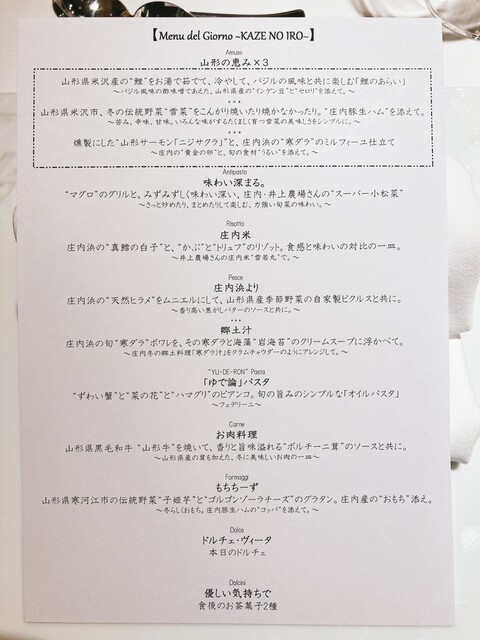 【Menu del Giorno ~KAZE NO IRO~】
Amuse
山形の恵み×3
山形県米沢産の“鯉”をお湯で茹でて、冷やして、バジルの風味と共に楽しむ「鯉のあらい」
～バジル風味の酢味噌であえた、山形県産の“インゲン豆”と“セロリ”を添えて。～
***
山形県米沢市、冬の伝統野菜“雪菜”をこんがり焼いたり焼かなかったり。“庄内豚生ハム”を添えて。
～苦み、辛味、甘味。いろんな味がするたくましく育つ雪菜の美味しさをシンプルに。～
***
燻製にした“山形サーモン「ニジサクラ」”と、庄内浜の“寒ダラ”のミルフィーユ仕立て
～庄内の“黄金の卵”と、旬の食材“うるい”を添えて。～
Antipasto
味わい深まる。
“マグロ”のグリルと、みずみずしく味わい深い、庄内・井上農場さんの“スーパー小松菜”
～さっと炒めたり、まとめたりして楽しむ、力強い旬菜の味わい。～
Risotto
庄内米
庄内浜の“真鱈の白子”と、“かぶ”と“トリュフ”のリゾット。食感と味わいの対比の一皿。
～井上農場さんの庄内米“雪若丸”で。～
Pesce
庄内浜より
庄内浜の“天然ヒラメ”をムニエルにして、山形県産季節野菜の自家製ピクルスと共に。
～香り高い焦がしバターのソースと共に。～
***
郷土汁
庄内浜の旬“寒ダラ”ポワレを、その寒ダラと海藻“岩海苔”のクリームスープに浮かべて。
～庄内冬の郷土料理「寒ダラ汁」をクラムチャウダーのようにアレンジして。～
“YU-DE-RON” Pasta
「ゆで論」パスタ
“ずわい蟹”と“菜の花”と“ハマグリ”のビアンコ。旬の旨みのシンプルな「オイルパスタ」
～フェデリーニ～
Carne
お肉料理
山形県黒毛和牛 “山形牛”を焼いて、香りと旨味溢れる“ポルチーニ茸”のソースと共に。
～山形県産の茸も加えた、冬に美味しいお肉の一皿～
Formaggi
もちちーず
山形県寒河江市の伝統野菜“子姫芋”と“ゴルゴンゾーラチーズ”のグラタン。庄内産の“おもち”添え。
～冬らしくおもち。庄内豚生ハムの“コッパ”を添えて。～
Dolce
ドルチェ・ヴィータ
本日のドルチェ
Dolcini
優しい気持ちで
食後のお茶菓子2種